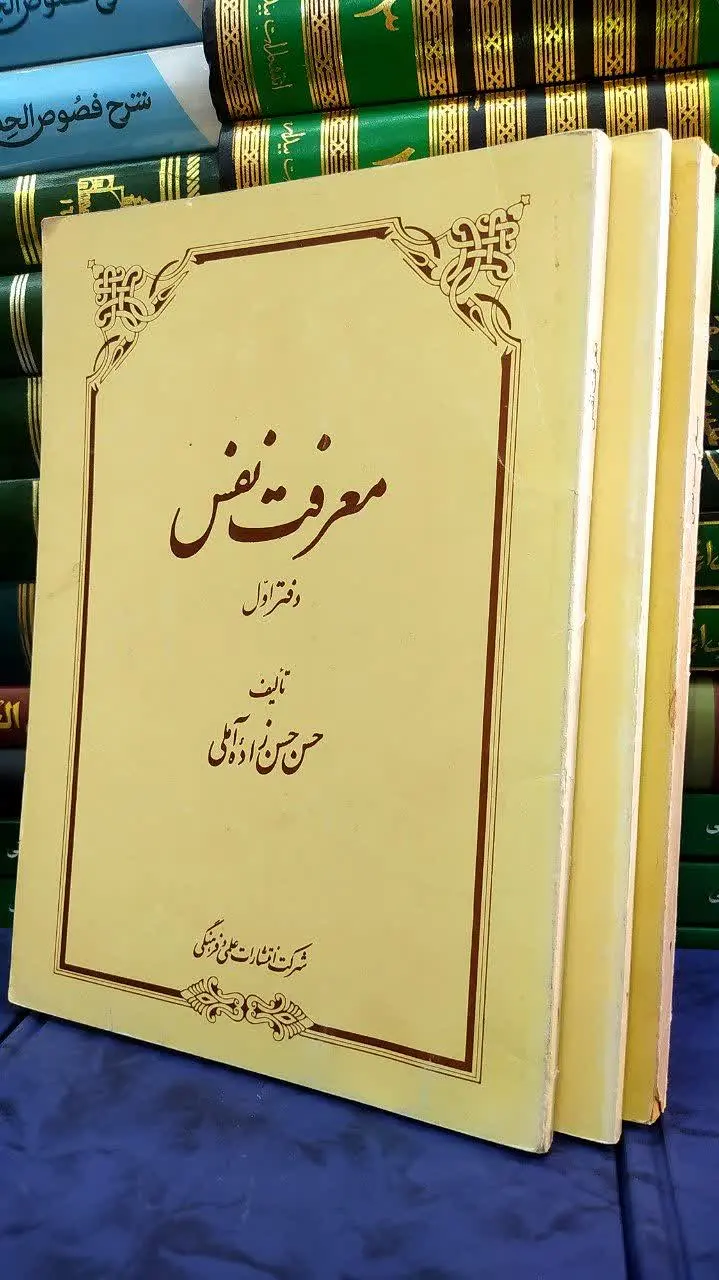 شرح فصوص الحـ
۳
معرفت نفس
دفتر اوّل
تألیف
حسن حسن‌زادهٔ آملی
شرکت انتشارات علمی و فرهنگی
معرفت نفس